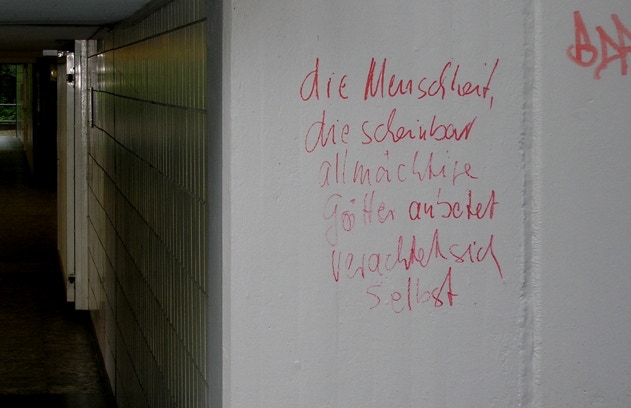 die Menschheit,
die scheinbar
allmächtige
Götter anbetet
verachtet sich
selbst